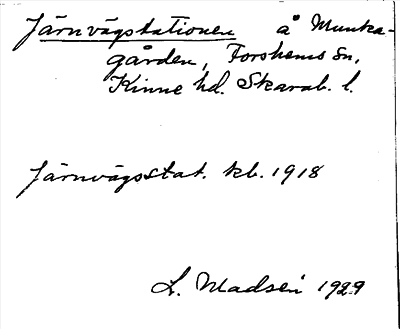 Järnvägstationen å Munka-
gården, Forshems sn,
Kinne hd. Skarab. l.
Järnvägsstat. kb. 1918
L. Madsén 1929